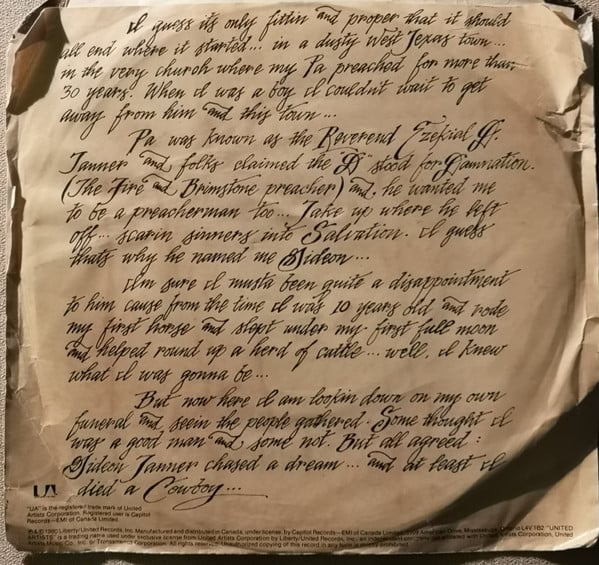 I guess its only fittin and proper that it should
all end where it started... in a dusty West Texas town...
in the very church where my Pa preached for more than
30 years. When I was a boy I couldn't wait to get
away from him and this town...
Pa was known as the Reverend Ezekial D.
Tanner and folks claimed the "D" stood for Damnation.
(The Fire and Brimstone preacher) and, he wanted me
to be a preacherman too... Take up where he left
off... scarin sinners into Salvation. I guess
thats why he named me Gideon...
I'm sure I musta been quite a disappointment
to him cause from the time I was 10 years old and rode
my first horse and slept under my first full moon
and helped round up a herd of cattle... well, I knew
what I was gonna be...
But now here I am lookin down on my own
funeral and seein the people gathered. Some thought I
was a good man and some not. But all agreed:
Gideon Tanner chased a dream... and at least I
died a Cowboy...
UA
"UA" is the registered trade mark of United
Artists Corporation. Registered user is Capitol
Records—EMI of Canada Limited.
1980 Liberty/United Records, Inc. Manufactured and distributed in Canada, under license, by Capitol Records—EMI of Canada Limited, American Drive, Mississauga, Ontario L4V 1B2 "UNITED
ARTISTS" is a trading name used under exclusive license from United Artists Corporation by Liberty/United Records, Inc., an independent company not affiliated with United Artists Corporation, United
Artists Music Co., Inc. or Transamerica Corporation. All rights reserved. Unauthorized copying of this record in any form is strictly prohibited.